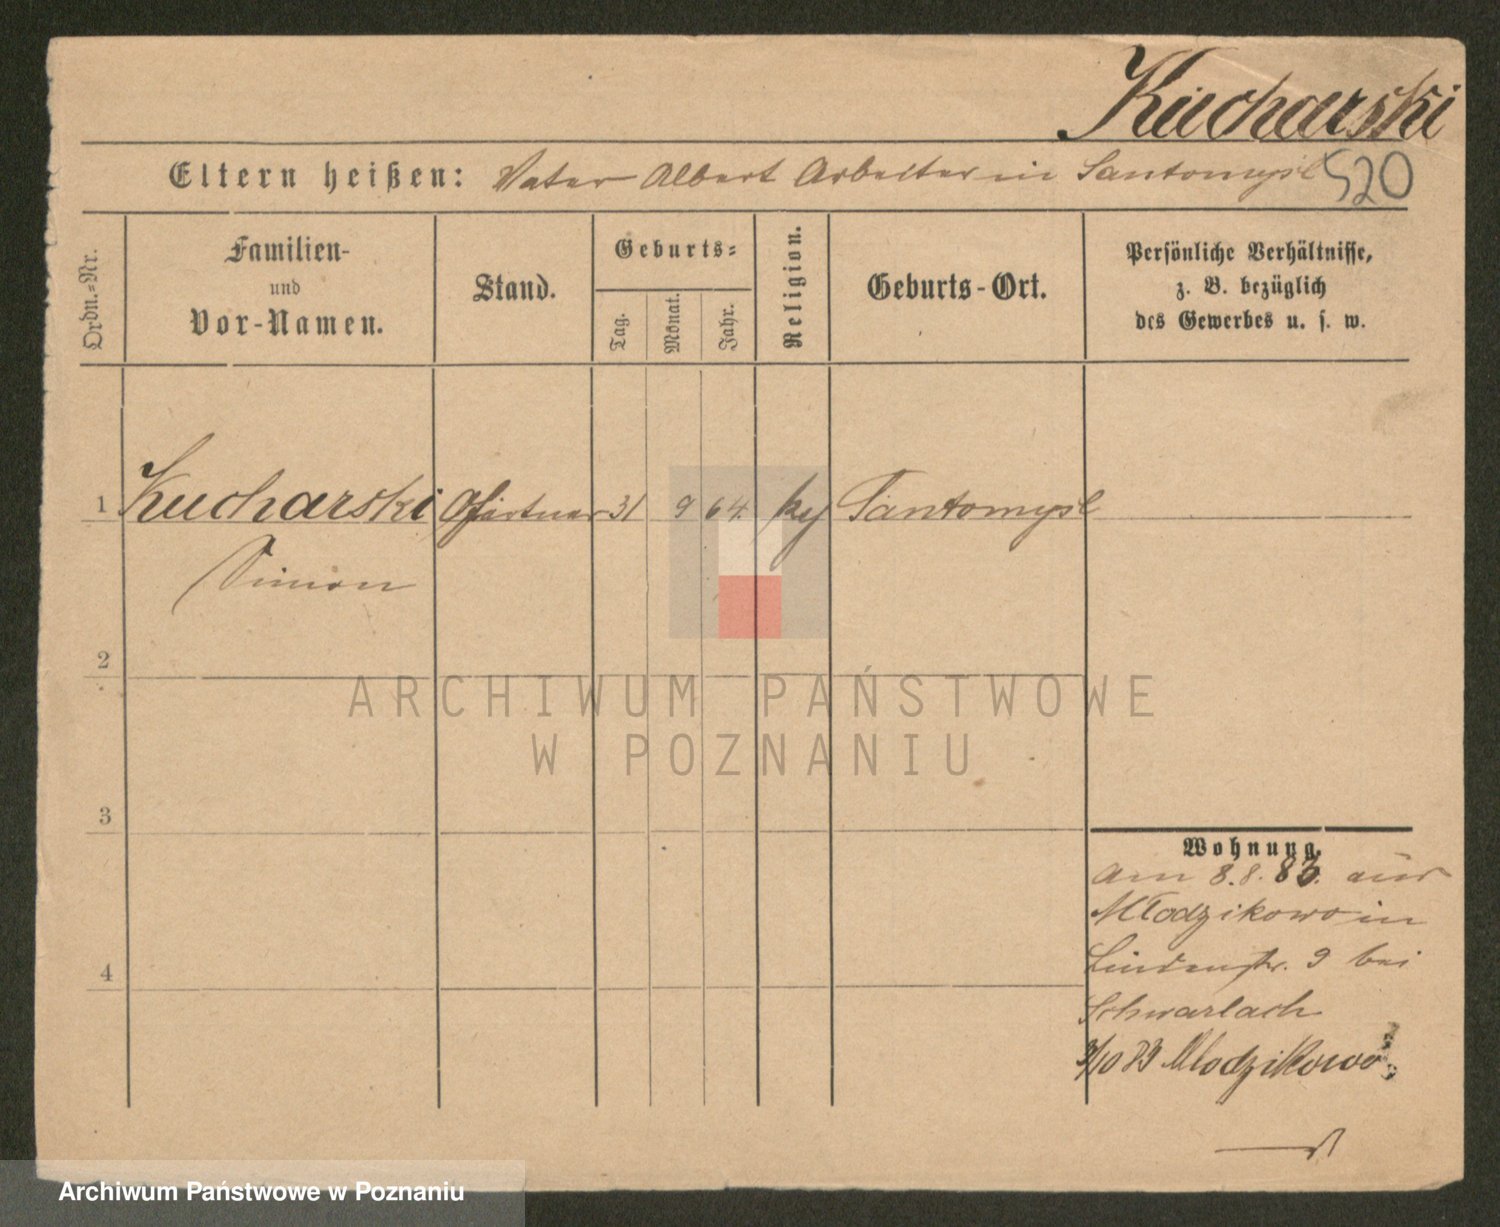 Kucharski
Eltern heißen: Vater Albert Arbeiter in Santomysl 520
Ordn.-Nr.
Familien-
und
Vor-Namen.
Stand.
Geburts-
Tag.
Monat.
Jahr.
Religion.
Geburts-Ort.
Persönliche Verhältnisse,
z. B. bezüglich
des Gewerbes u. s. w.
1 Kucharski Gärtner 31 9 64. Santomysl
Simon
2
ARCHIWUM PAŃSTWOWE
W POZNANIU
3
Wohnung.
am 8.8.83. aus
Młodzikowo in
Lindenstr. 9 bei
4
3/10 83 Mlodzikowo
Archiwum Państwowe w Poznaniu